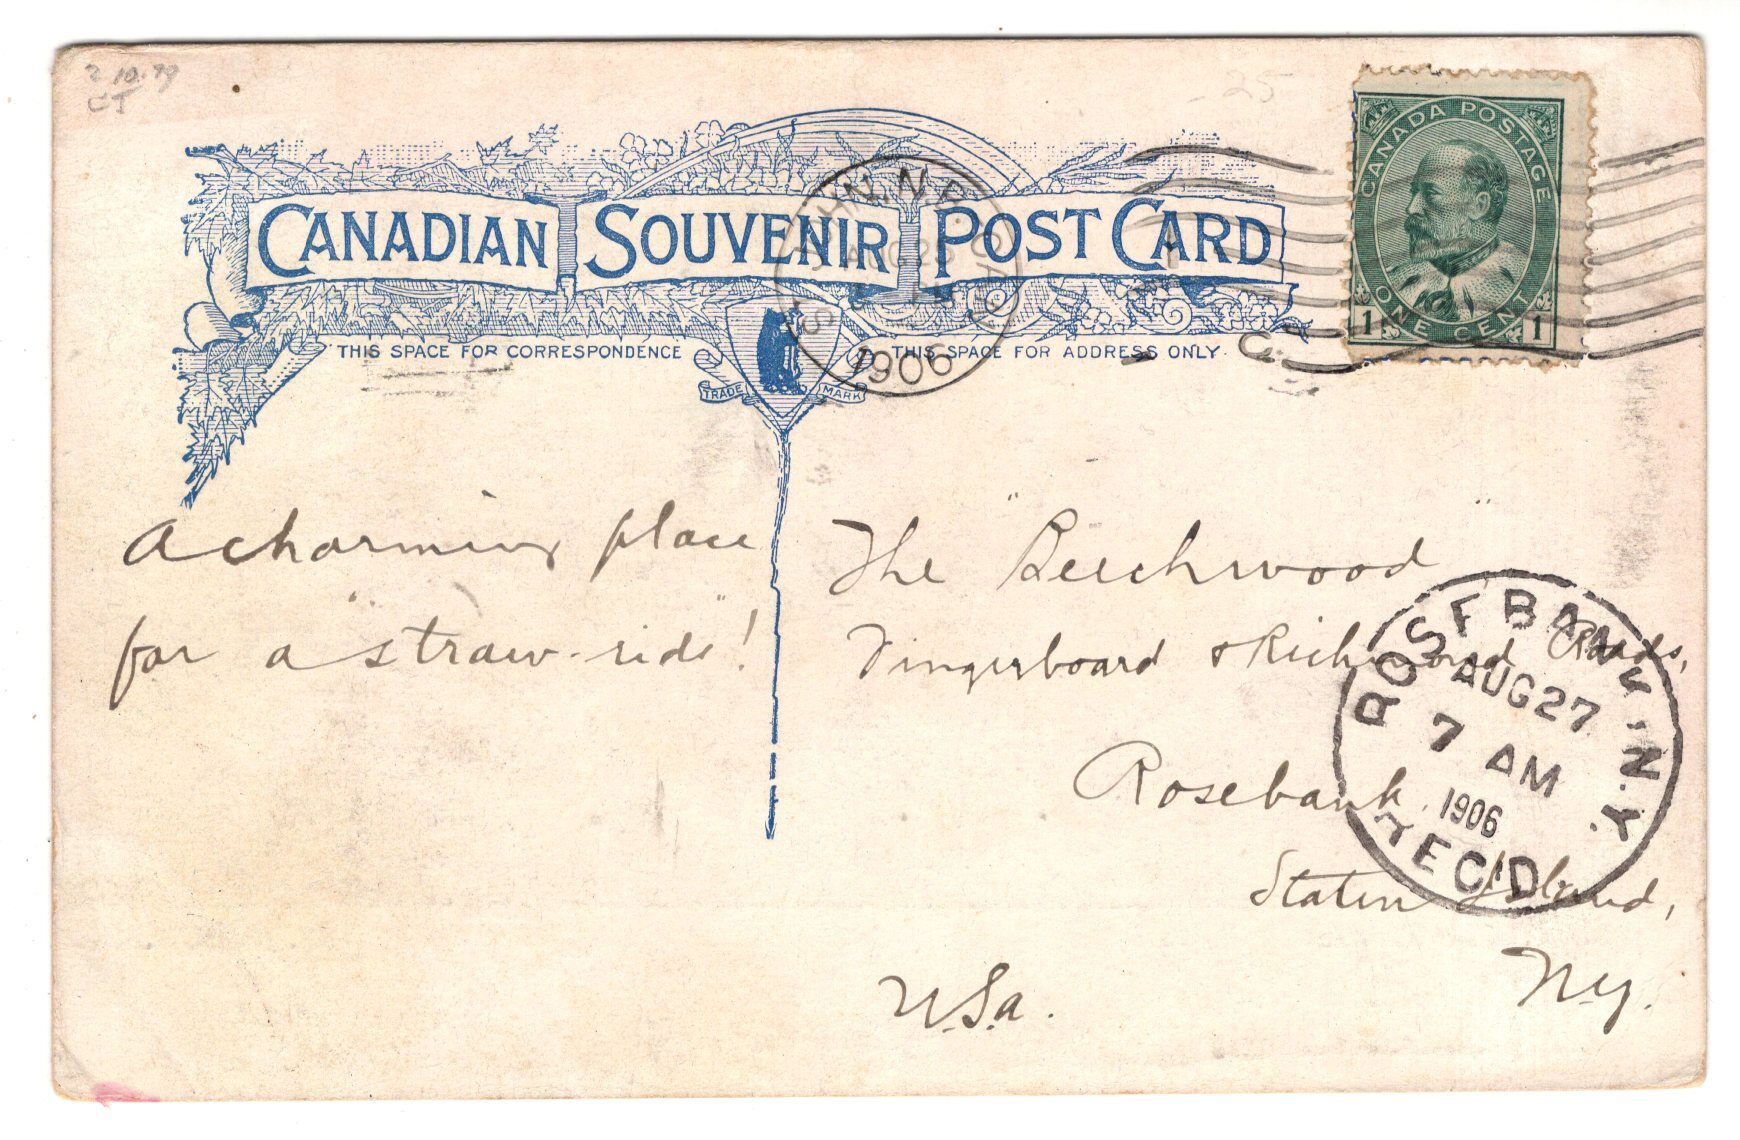 CANADIAN SOUVENIR POST CARD
THIS SPACE FOR CORRESPONDENCE
THIS SPACE FOR ADDRESS ONLY.
TRADE MARK
CANADA POSTAGE
ONE CENT
1 1
ST. JOHN, N.B. CAN
AUG 25
1906
25
A charming place
for a "straw-ride"!
The "Beechwood"
Fingerboard & Richmond Roads,
Rosebank,
Staten Island,
N.Y.
U.S.a.
ROSEBANK, N.Y.
AUG 27
7 AM
1906
REC'D.